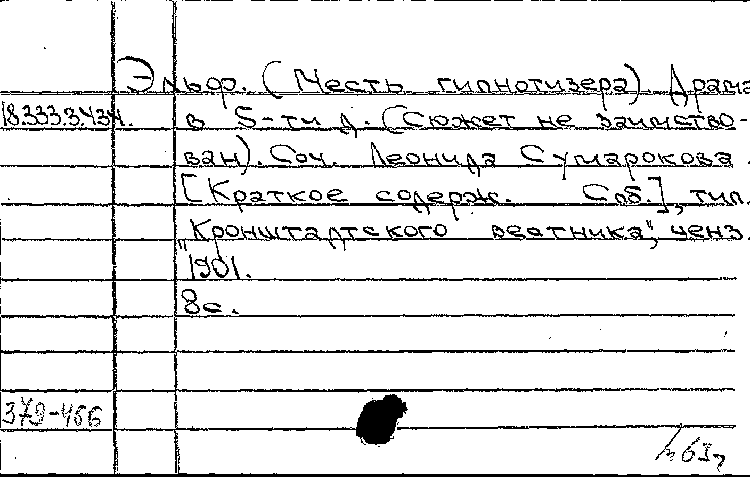 Эльф. (Месть гипнотизера) Драма
18.333.3.434. в 5-ти д. (Сюжет не заимство-
ван). Соч. Леонида Сумарокова.
[Краткое содерж. Спб.], тип.
"Кронштадтского вестника", ценз.
1901.
8с.
379-456